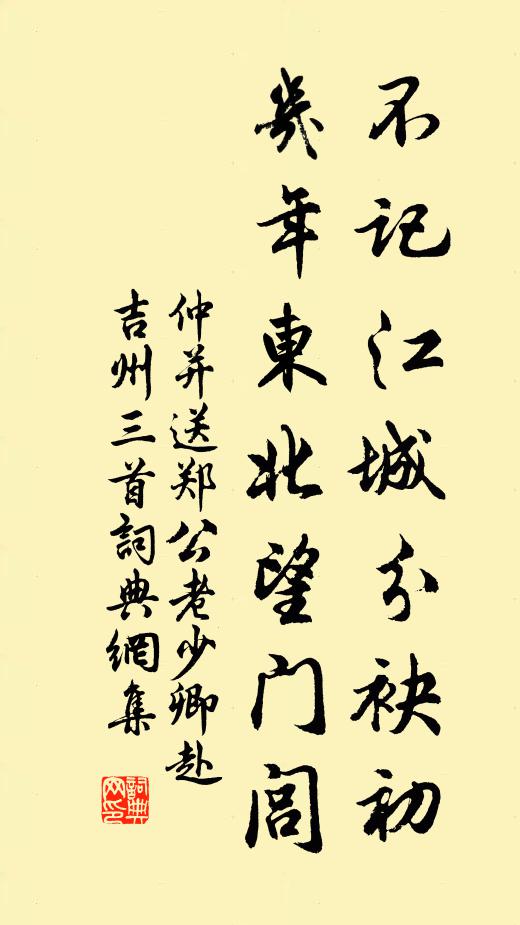 不记江城分袂初
几年東北望门闾
仲并送郑公老少卿赴
吉州三首詞典網集
詞典网印